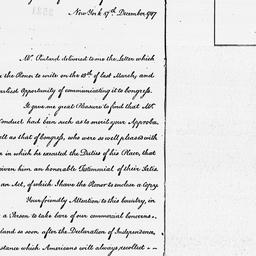 New York 17th December 1787
Mr. Pintard delivered to me the Letter which
the Honor to write on the 18th of last March, and
earliest Opportunity of communicating it to Congress.
It gave me great Pleasure to find that Mr.
Conduct had been such as to merit your Approba
ell as that of Congress, who were so well pleased with
er in which he executed the Duties of his Place, that
given him an honorable Testimonial of their Satis
an Act, of which I have the Honor to enclose a Copy.
Your friendly Attention to this Country, in
a Person to take care of our commercial concerns,
land so soon after the Declaration of Independence,
stance which Americans will always recollect